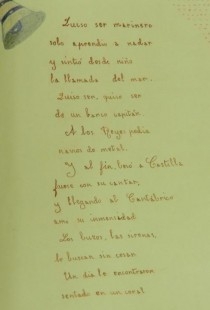 Quiso ser marinero
solo aprendio a nadar
y sintió desde niño
la llamada del mar.
Quiso ser, quiso ser
de un barco capitán
A los Reyes pedia
navios de metal.
Y al fin, dejó a Castilla
fuese con su cantar,
y llegando al Cantábrico
amó su inmensidad
Los buzos, las sirenas,
lo buscan sin cesar.
Un dia lo encontraron
sentado en un coral.